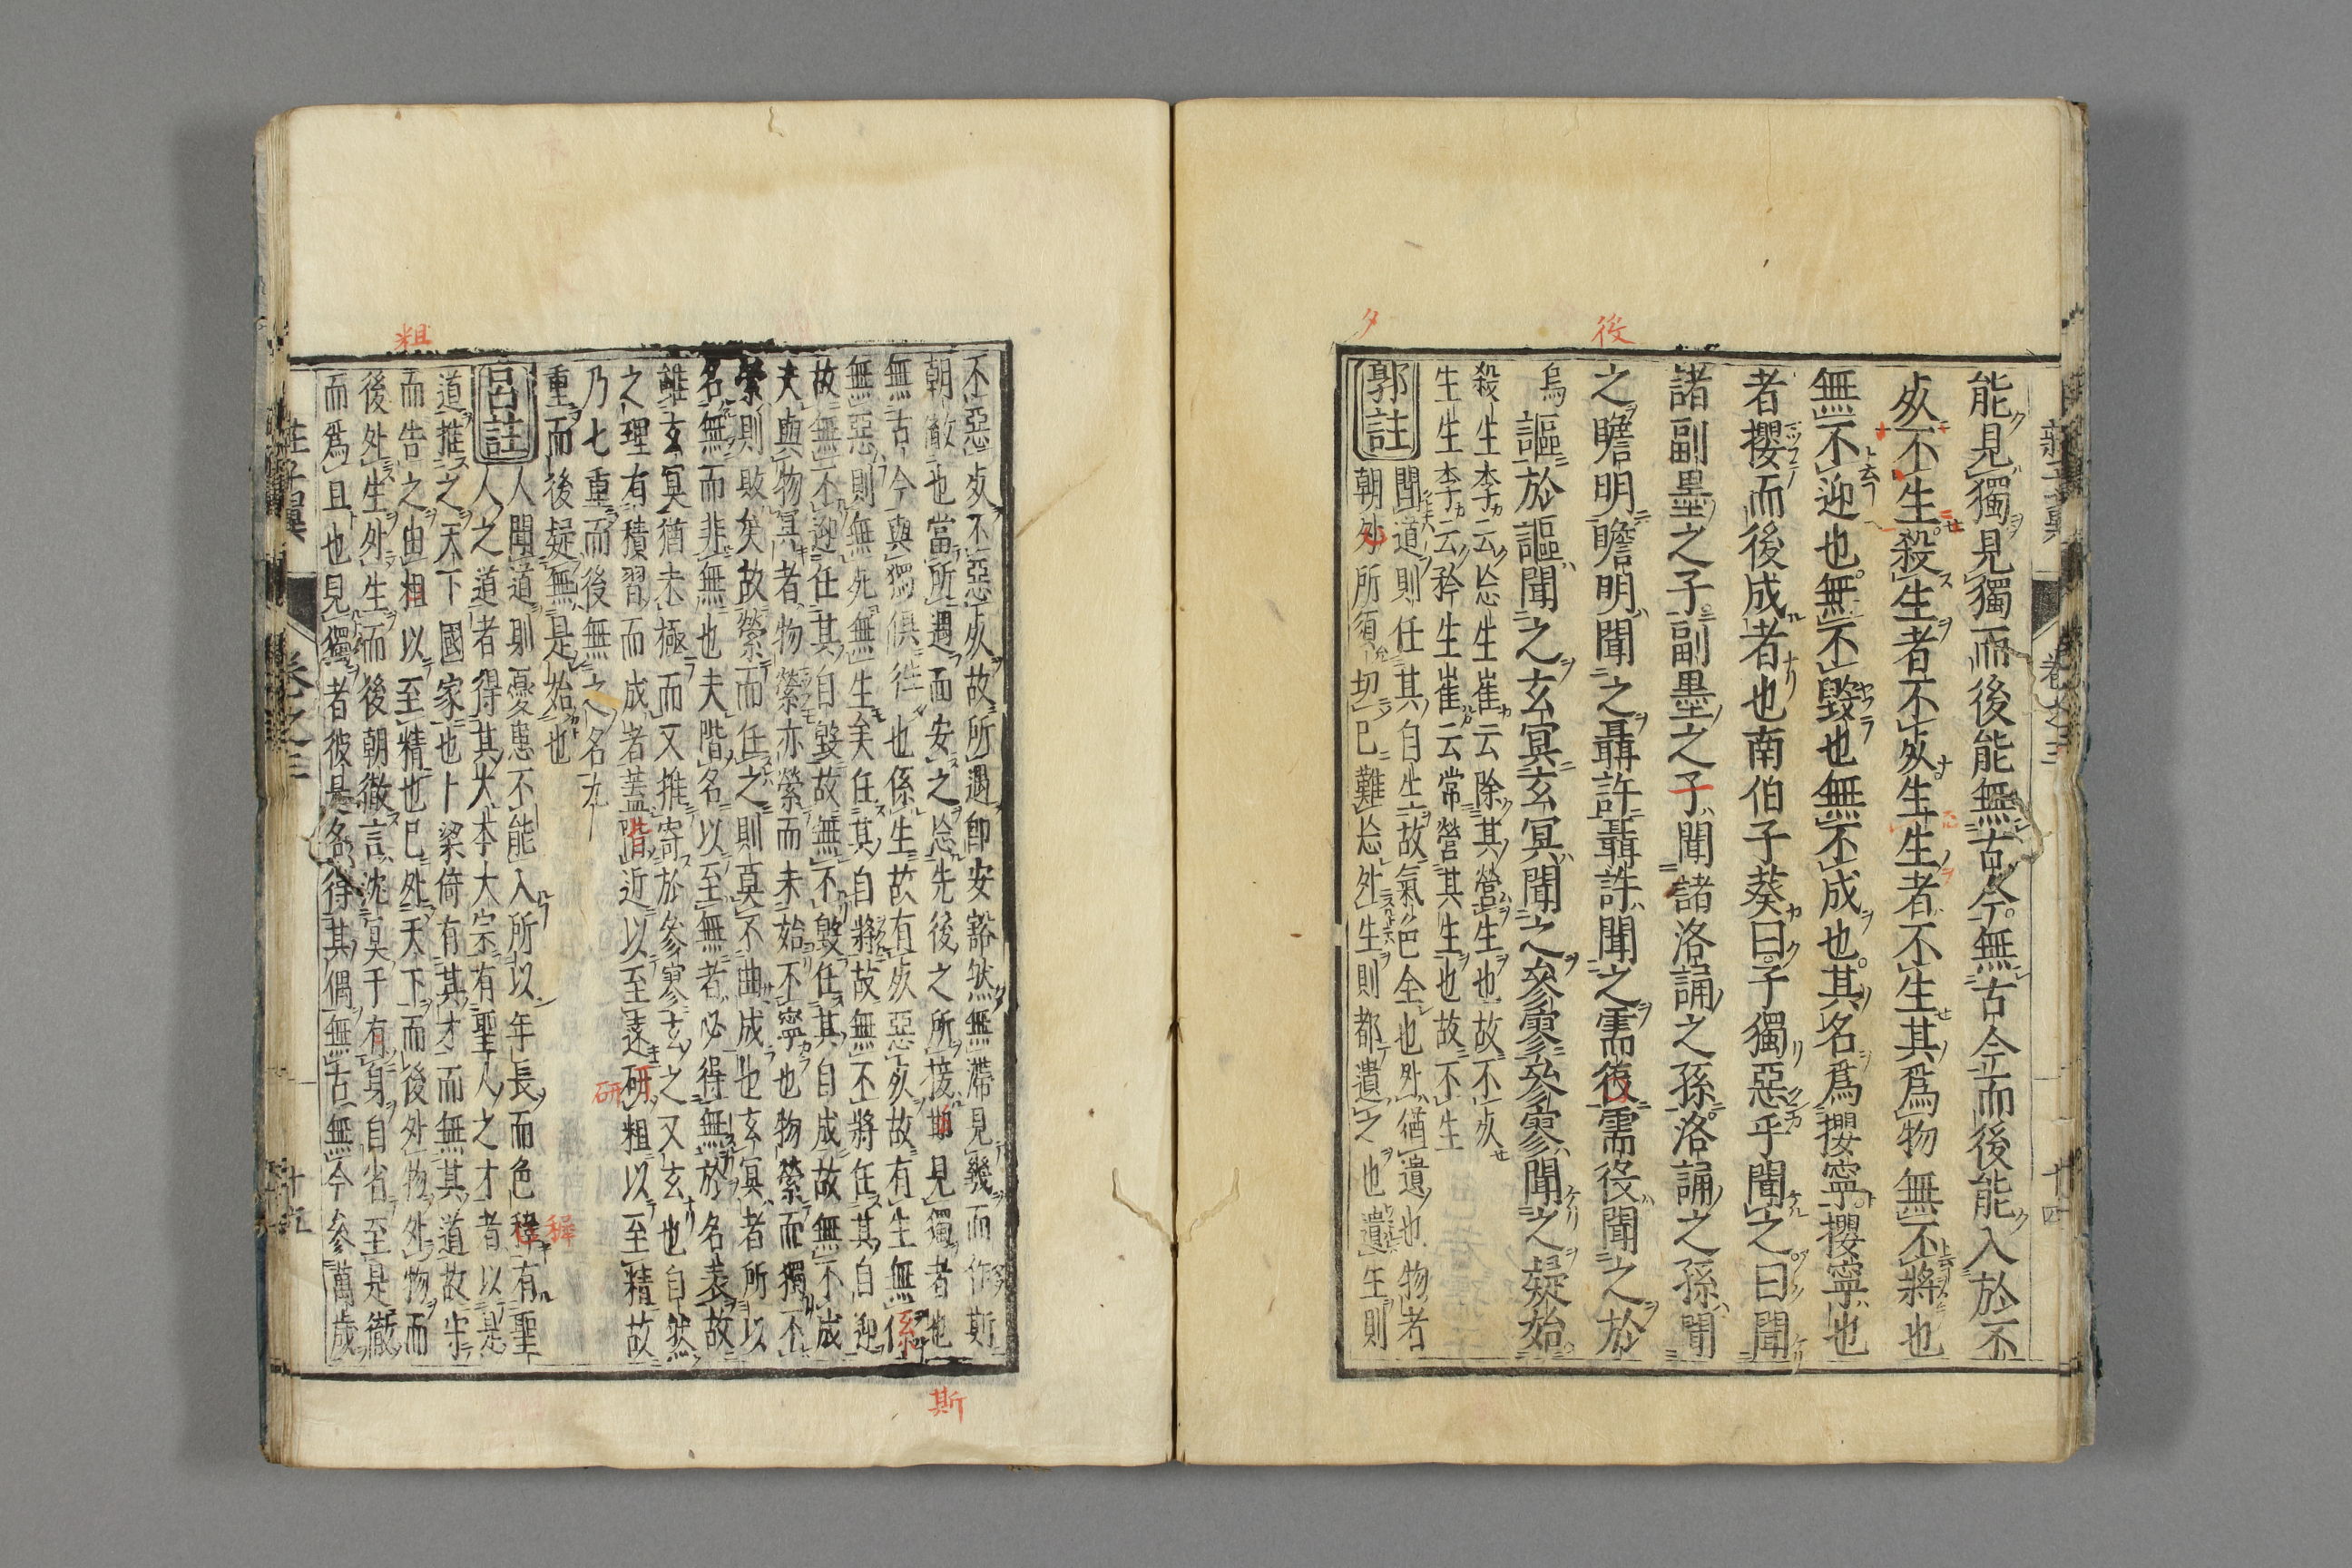 能見獨見獨而後能無古今無古今而後能入於不
死不生殺生者不死生生者不生其爲物無不將也
無不迎也無不毀也無不成也其名爲攖寧攖寧也
者攖而後成者也南伯子葵曰子獨惡乎聞之曰聞
諸副墨之子副墨之子聞諸洛誦之孫洛誦之孫聞
之瞻明瞻明聞之聶許聶許聞之需役需役聞之於
謳於謳聞之玄冥玄冥聞之參寥參寥聞之疑始
烏
殺生李云忘生崔云除其營生也故不死
生生李云矜生崔云常營其生也故不生
郭註
聞道則任其自生故氣色全也外猶遺也物者
朝外所須切已難忘外生則都遺之也遺生則
卷之三
十四
不惡死不惡死故所遇卽安豁然無滯見幾而作斯
朝徹也當所遇而安之忘先後之所接斯見獨者也
無古今與獨俱往也係生故有死惡死故有生無係
無惡則無死無生矣任其自將故無不將任其自迎
故無不迎任其自毀故無不毀任其自成故無不成
夫與物冥者物縈亦縈而未始不寧也物縈而獨不
縈則敗矣故縈而任之則莫不曲成也玄冥者所以
名無而非無也夫階名以至無者必得無於名表故
雖玄冥猶未極而又推寄於參寥玄之又玄也自然
之理有積習而成者蓋階近以至遠研粗以至精故
乃七重而後無之名九
重而後疑無是始也
呂註
人聞道則憂患不能入所以年長而色穉有聖
人之道者得其大本大宗有聖人之才者以是
道推之天下國家也卜梁倚有其才而無其道故守
而告之由粗以至精也已外天下而後外物外物而
後外生外生而後朝徹言沈冥于有身自省至是徹
而爲旦也見獨者彼是各得其偶無古無今參萬歲
莊子翼
卷之三
十五
夕
後
粗
皆
研
穉
係
斯